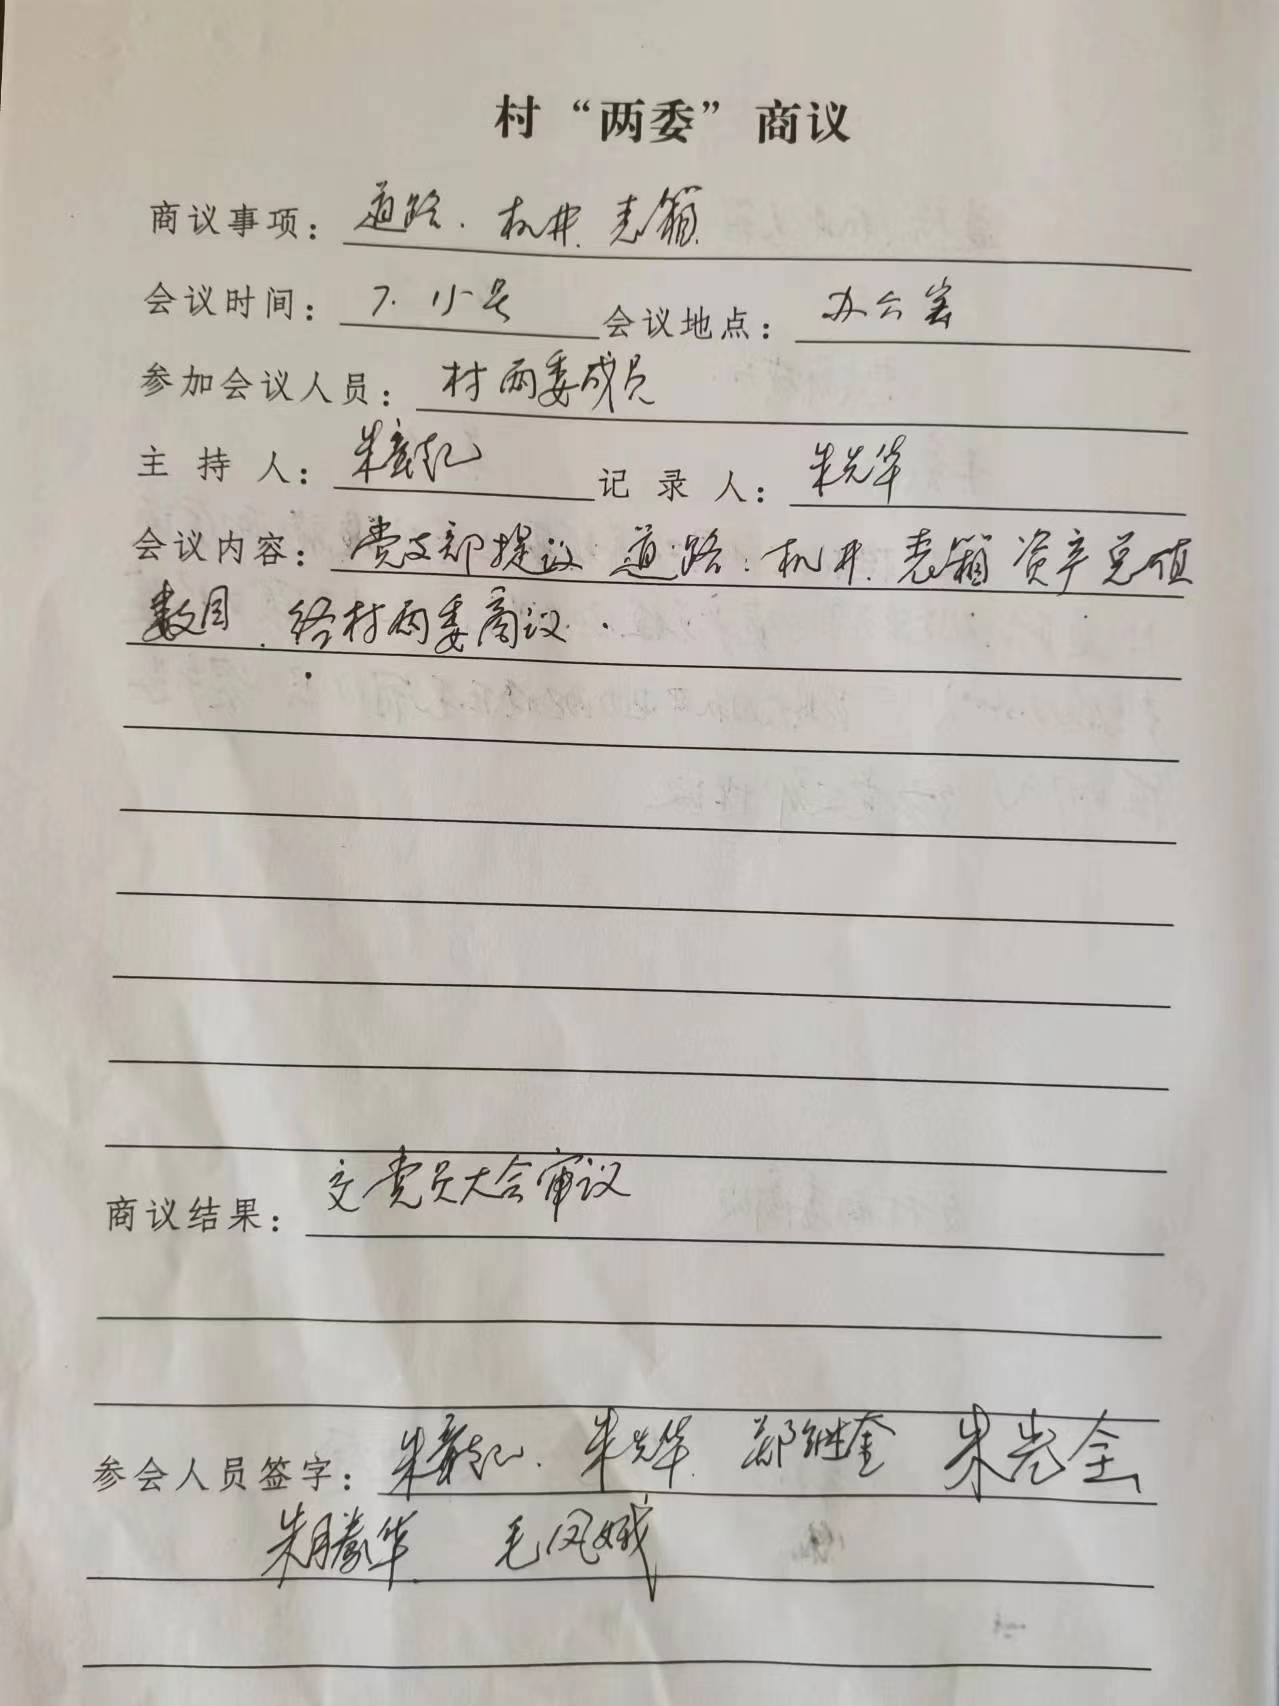 村“两委”商议
商议事项：道路．机井．表箱．
会议时间：7．15号 会议地点：办公室
参加会议人员：村两委成员
主持人：朱 记录人：朱先华
会议内容：党支部提议．道路．机井．表箱资产总值
数目．给村两委商议．
商议结果：交党员大会审议
参会人员签字：朱 朱先华 郑继奎 朱光全
朱腾华 毛凤娥